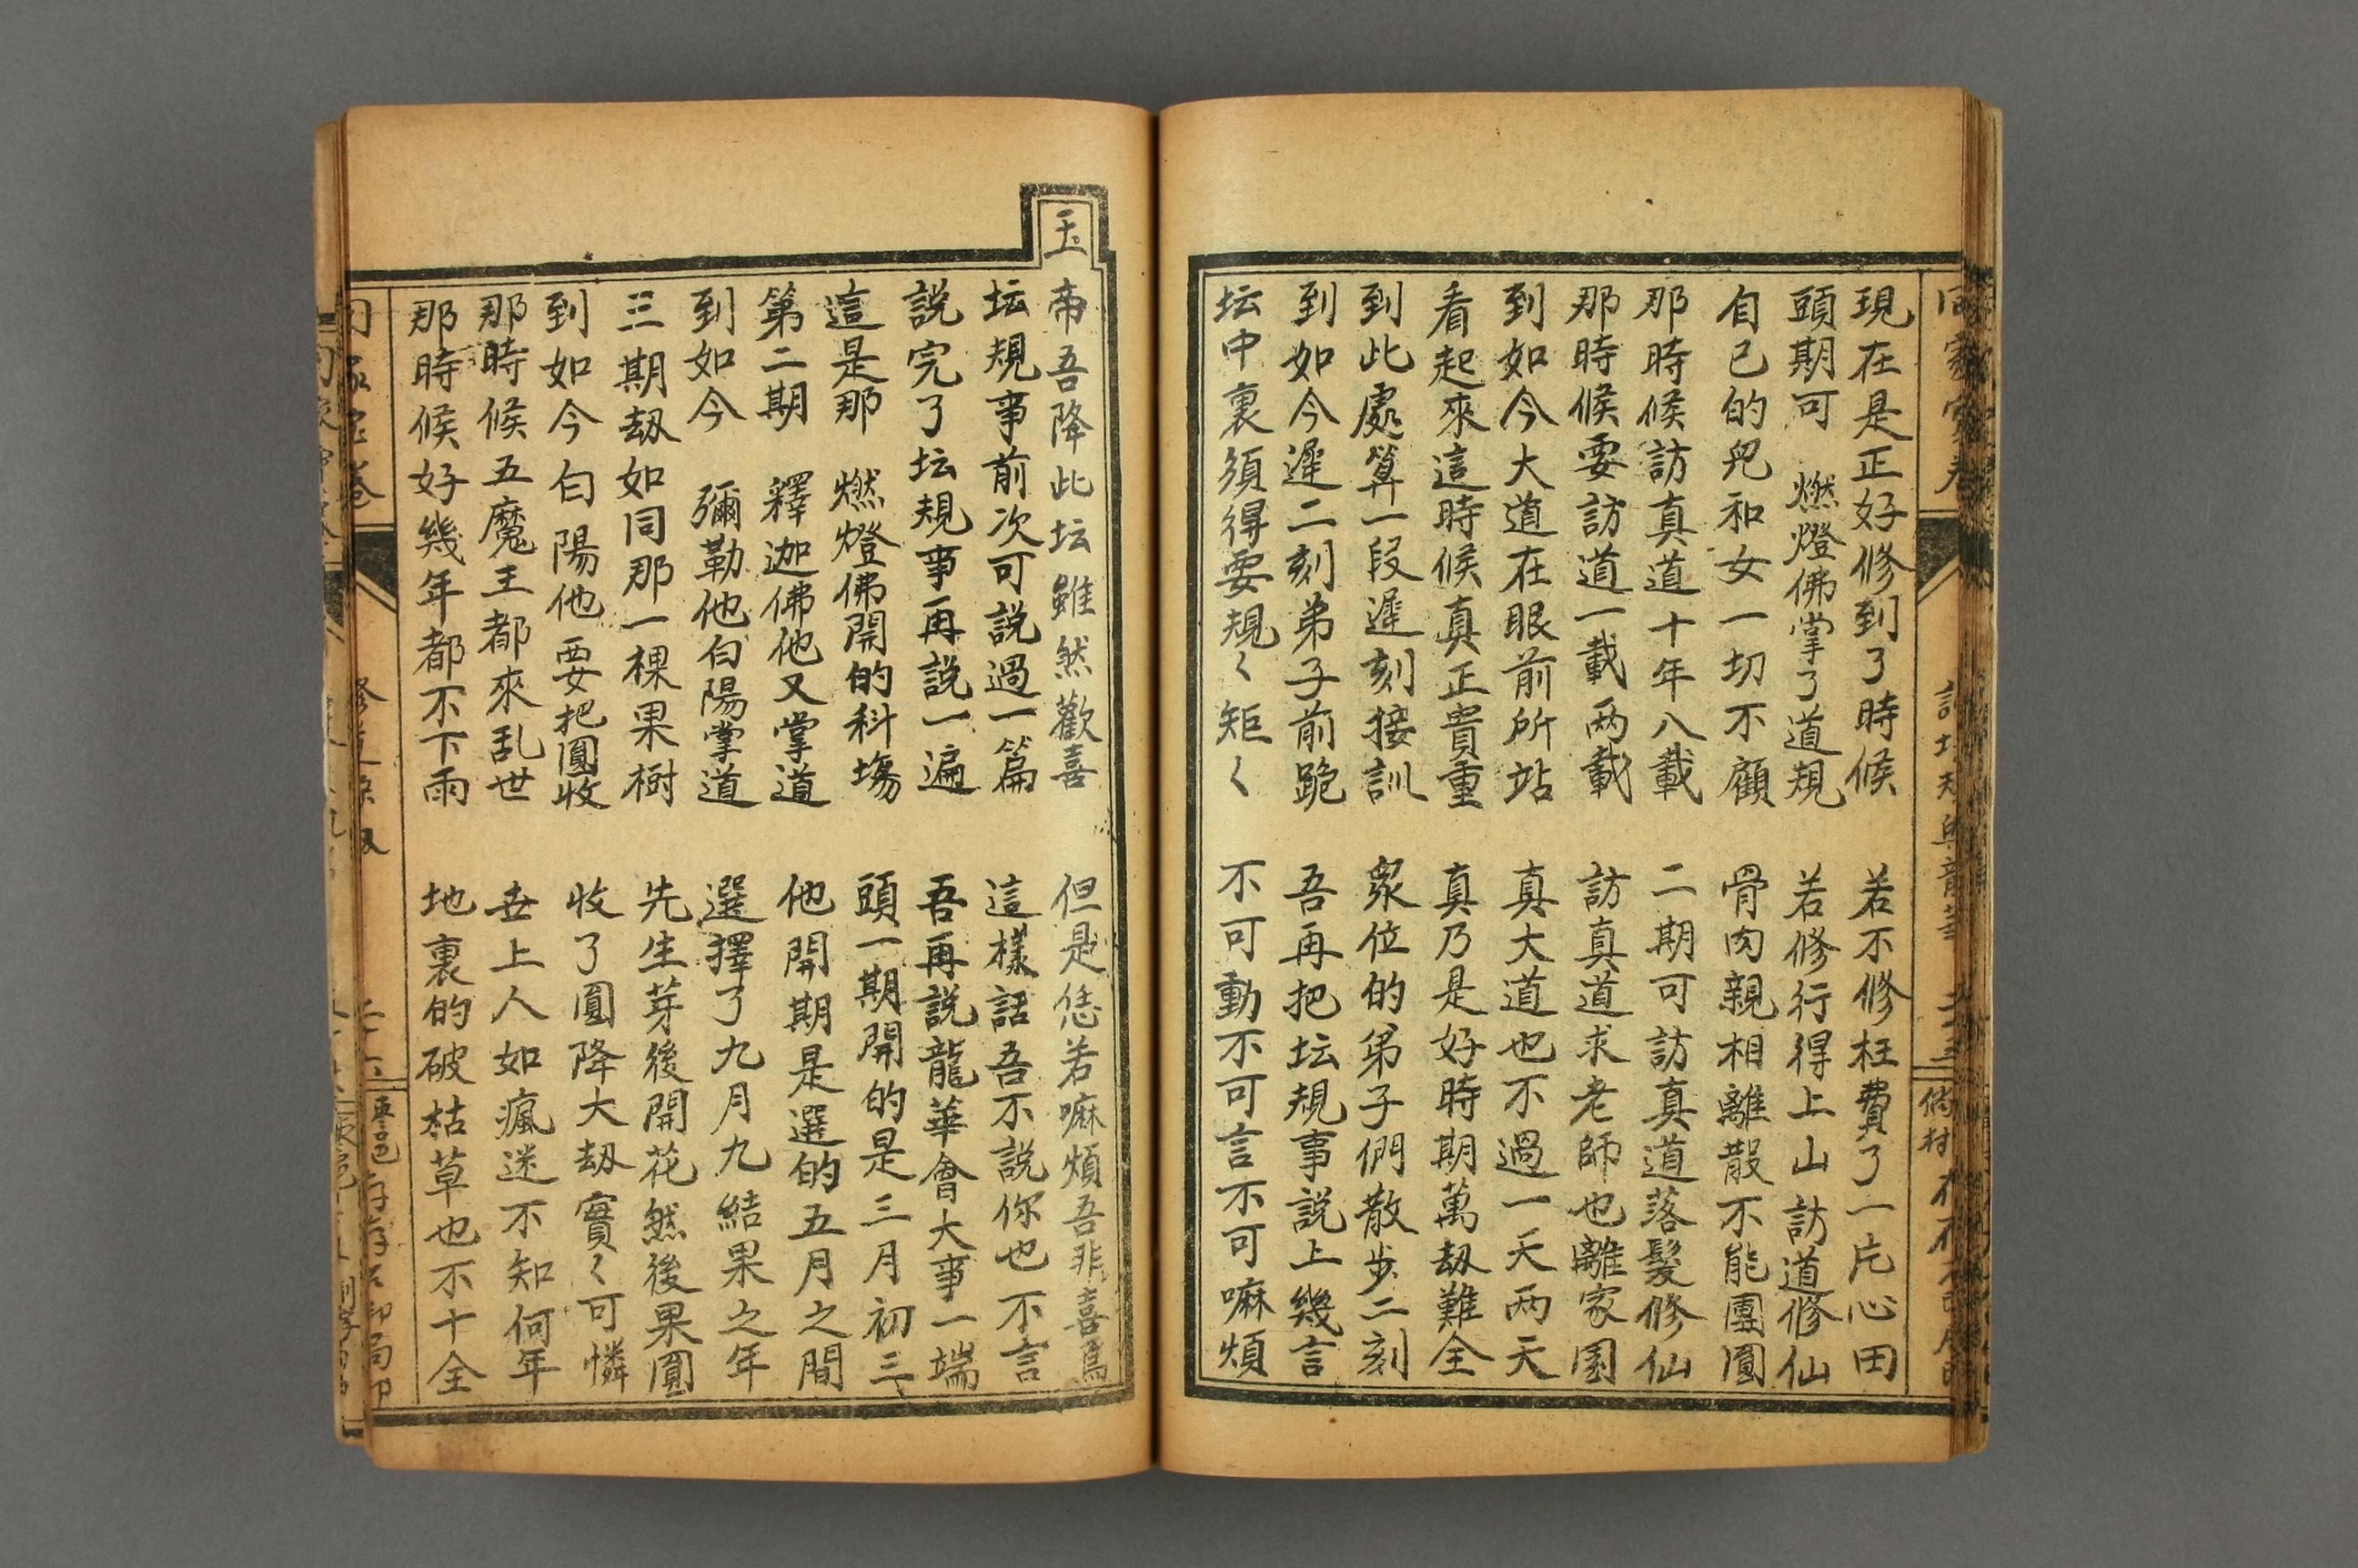 現在是正好修到了時候　若不修枉費了一片心田
頭期可　燃燈佛掌了道規　若修行得上山訪道修仙
自已的児和女一切不顧　骨肉親相離散不能團圓
那時候訪真道十年八載　二期可訪真道落髮修仙
那時候要訪道一載両載　訪真道求老師也離家園
到如今大道在眼前所站　真大道也不過一天両天
看起來這時候真正貴重　真乃是好時期萬刼難全
到此處算一段遲刻接訓　眾位的弟子們散步二刻
到如今遲二刻弟子前跪　吾再把坛規事說上幾言
坛中裏須得要規〻矩〻　不可動不可言不可嘛煩
玉帝吾降此坛雖然歡喜　但是恁若嘛煩吾非喜焉
坛規事前次可說過一篇　這樣話吾不說你也不言
說完了坛規事再說一遍　吾再說龍華會大事一端
這是那　燃燈佛開的科塲　頭一期開的是三月初三
第二期　釋迦佛他又掌道　他開期是選的五月之間
到如今　彌勒他白陽掌道　選擇了九月九結果之年
三期刼如同那一棵果樹　先生芽後開花然後果圓
到如今　白陽他要把圓收　收了圓降大刼實〻可憐
那時候五魔王都來乱世　世上人如瘋迷不知何年
那時候好幾年都不下雨　地裏的破枯草也不十全